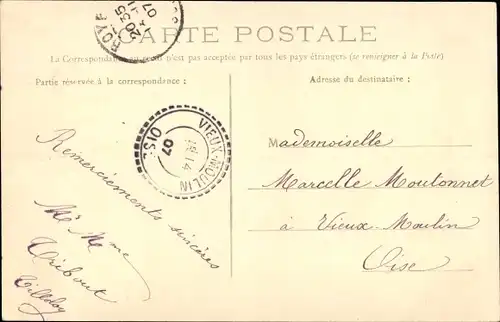 CARTE POSTALE
La Correspondance au recto n'est pas acceptée par tous les pays étrangers (se renseigner à la Poste)
Partie réservée à la correspondance :
Adresse du destinataire :
ROYE
20 35
07
VIEUX-MOULIN
OISE
14
07
Remerciements sincères
Mr Mme
Tilloloy
Mademoiselle
Marcelle Moutonnet
à Vieux-Moulin
Oise